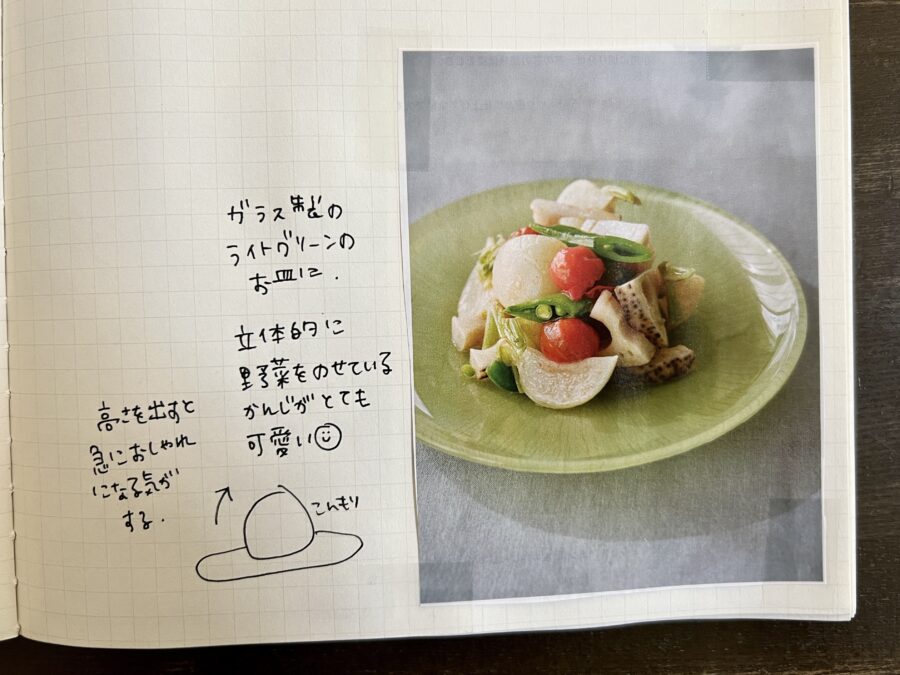 ガラス製の
ライトグリーンの
お皿に.
立体的に
野菜をのせている
かんじがとても
可愛い
高さを出すと
急におしゃれ
になる気が
する.
こんもり